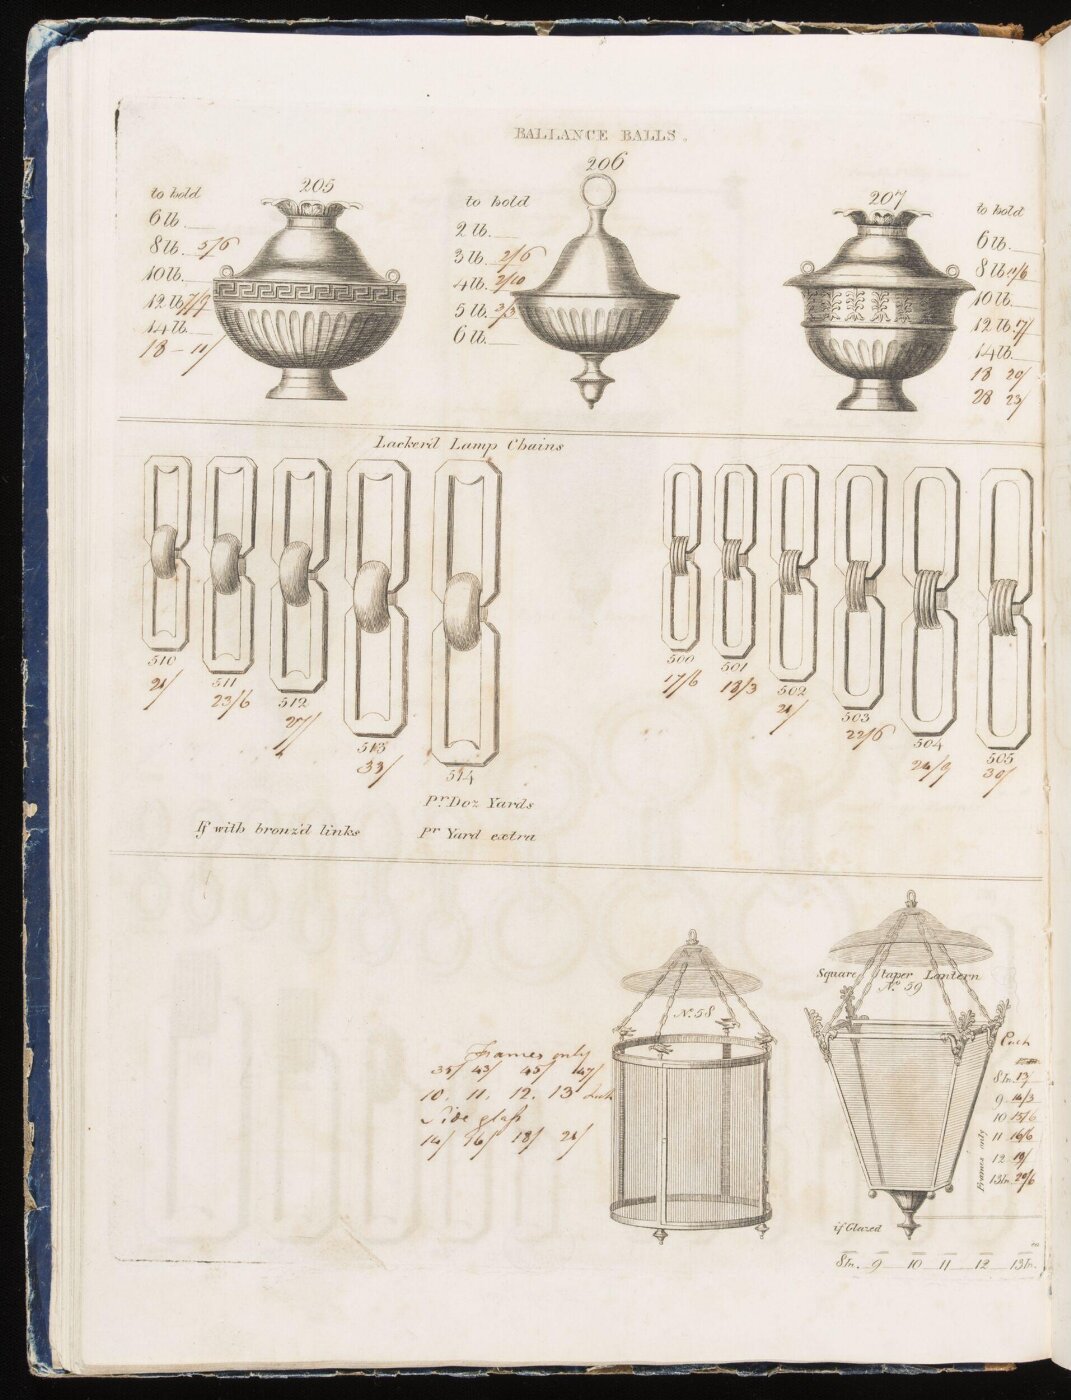 BALLANCE BALLS.
205
to hold
6 lb.
8 lb. 5/6
10 lb.
12 lb. 7/9
14 lb.
18 – 11/
206
to hold
2 lb.
3 lb. 2/6
4 lb. 2/10
5 lb. 3/3
6 lb.
207
to hold
6 lb.
8 lb.
10 lb.
12 lb. 17/
14 lb.
18 20/
28 23/
Lacker'd Lamp Chains
510
21/
511
23/6
512
27/
513
33/
514
Pr. Doz Yards
If with bronz'd links
Pr Yard extra
500
17/6
501
18/3
502
21/
503
22/6
504
505
30/
No. 58
Frames only
35/ 43/ 45/ 47/
10. 11. 12. 13 Inch
Side glass
14/ 16/ 18/ 21/
Square taper Lantern
No. 59
Each
8 In. 13/
9 14/3
10 15/6
11 16/6
12 19/
13 In. 20/6
Frames only
if Glazed
8 In. 9 10 11 12 13 In.